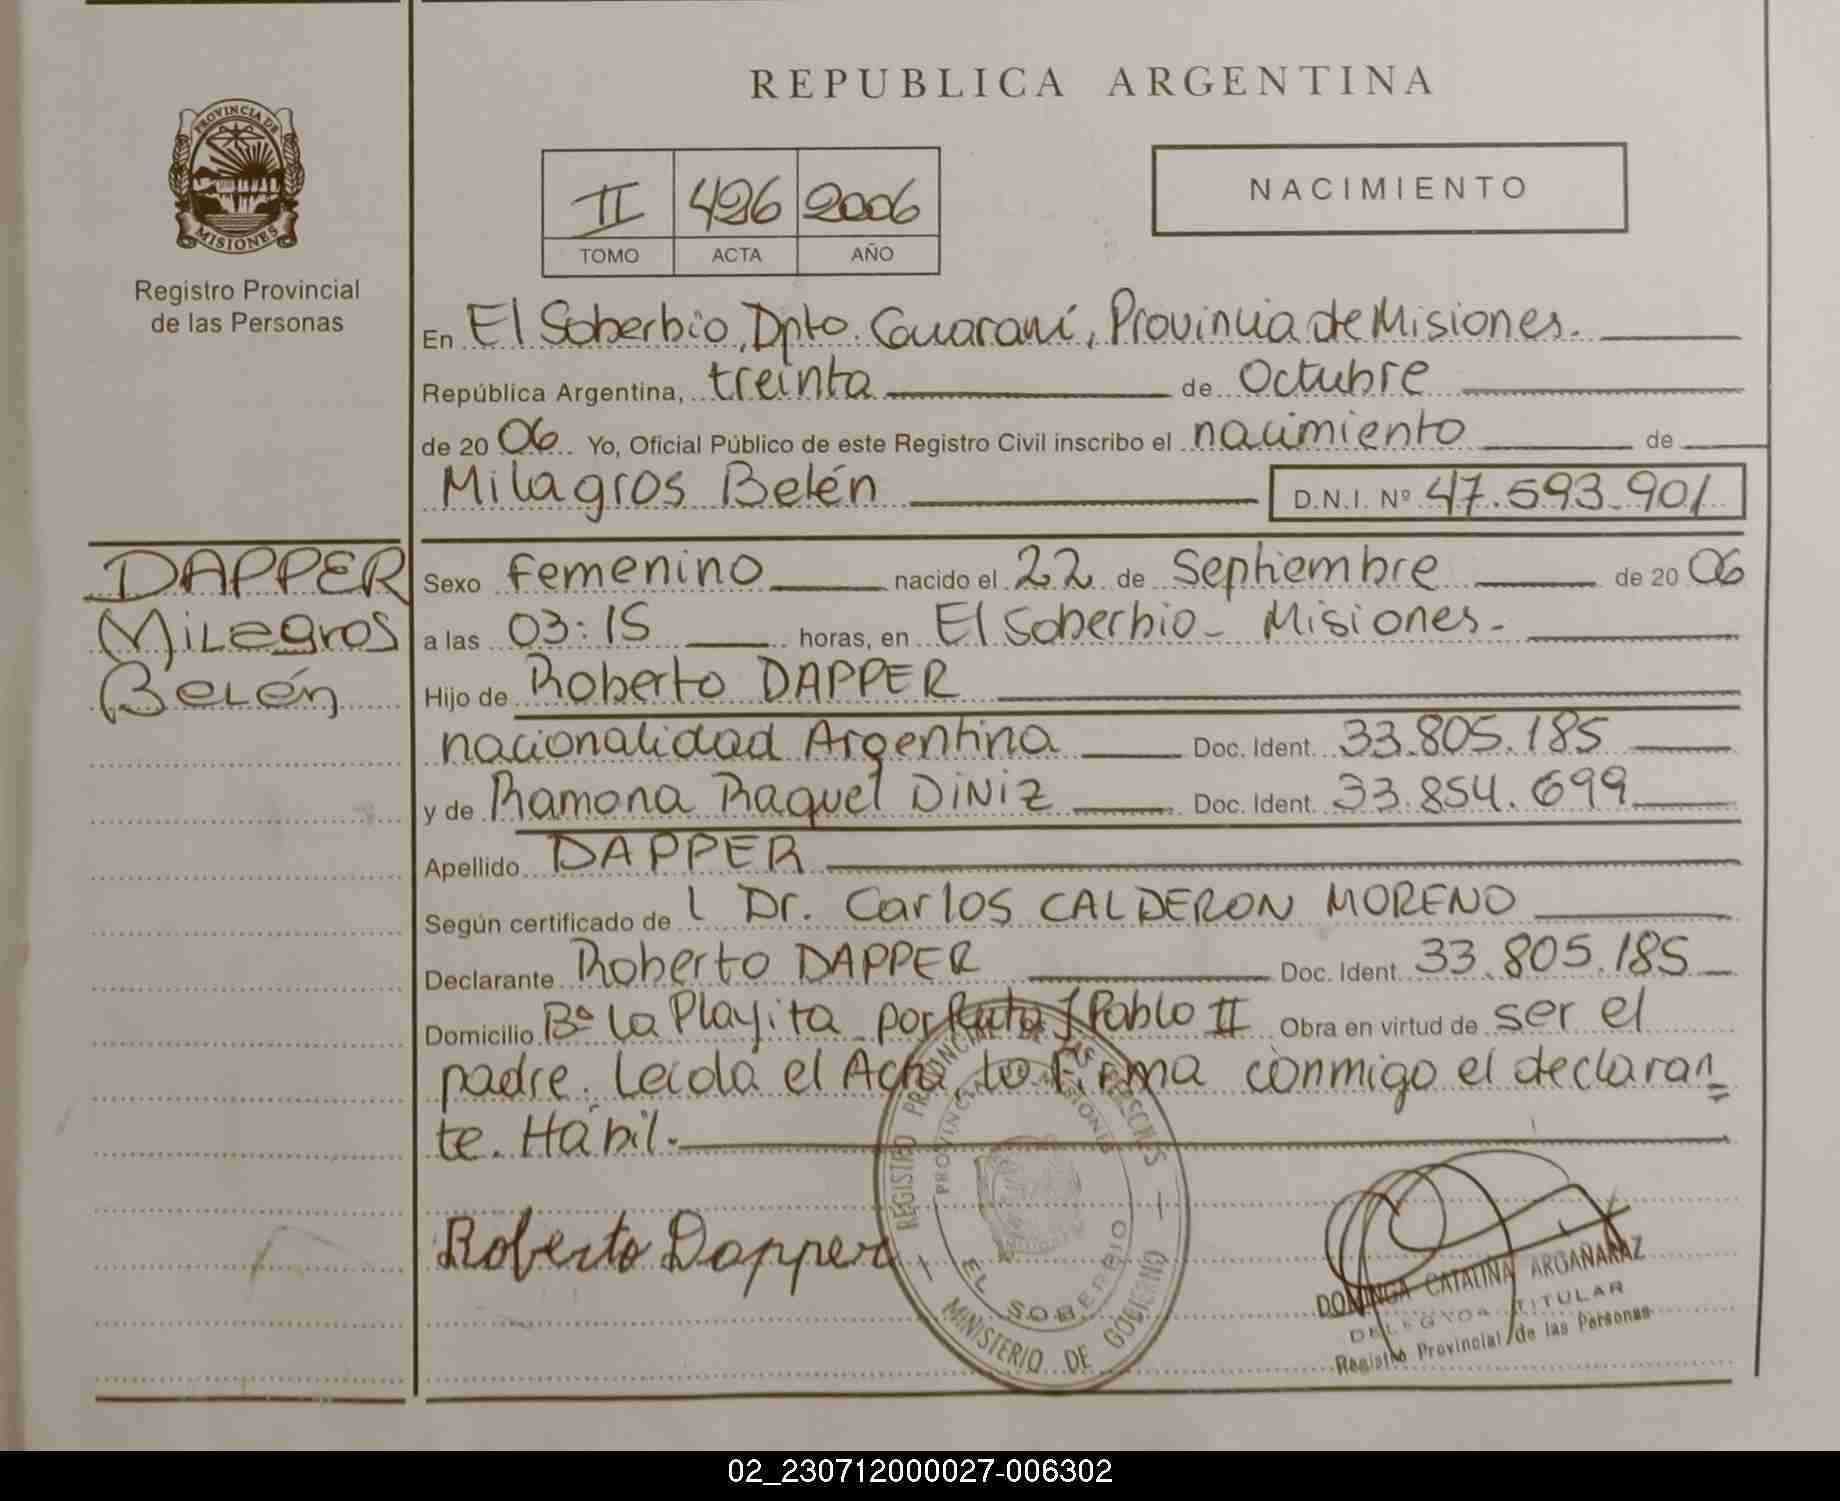 REPUBLICA ARGENTINA
PROVINCIA DE
MISIONES
Registro Provincial
de las Personas
II 426 2006
TOMO ACTA AÑO
NACIMIENTO
En El Soberbio, Dpto. Guaraní, Provincia de Misiones.
República Argentina, treinta de Octubre
de 20 06 Yo, Oficial Público de este Registro Civil inscribo el nacimiento de
Milagros Belén D.N.I. Nº 47.593.901
DAPPER
Milagros
Belén
Sexo femenino nacido el 22 de Septiembre de 20 06
a las 03:15 horas, en El Soberbio - Misiones.
Hijo de Roberto DAPPER
nacionalidad Argentina Doc. Ident. 33.805.185
y de Ramona Raquel DINIZ Doc. Ident. 33.854.699
Apellido DAPPER
Según certificado de Dr. Carlos CALDERON MORENO
Declarante Roberto DAPPER Doc. Ident. 33.805.185
Domicilio Bº La Playita por Ruta J Pablo II Obra en virtud de ser el
padre. Leida el Acta, lo Firma conmigo el declaran=
te. Hábil.
Roberto Dapper
REGISTRO PROVINCIAL DE LAS PERSONAS
PROVINCIA DE MISIONES
EL SOBERBIO
MINISTERIO DE GOBIERNO
DOMINGA CATALINA ARGAÑARAZ
DELEGADA TITULAR
Registro Provincial de las Personas
02_230712000027-006302